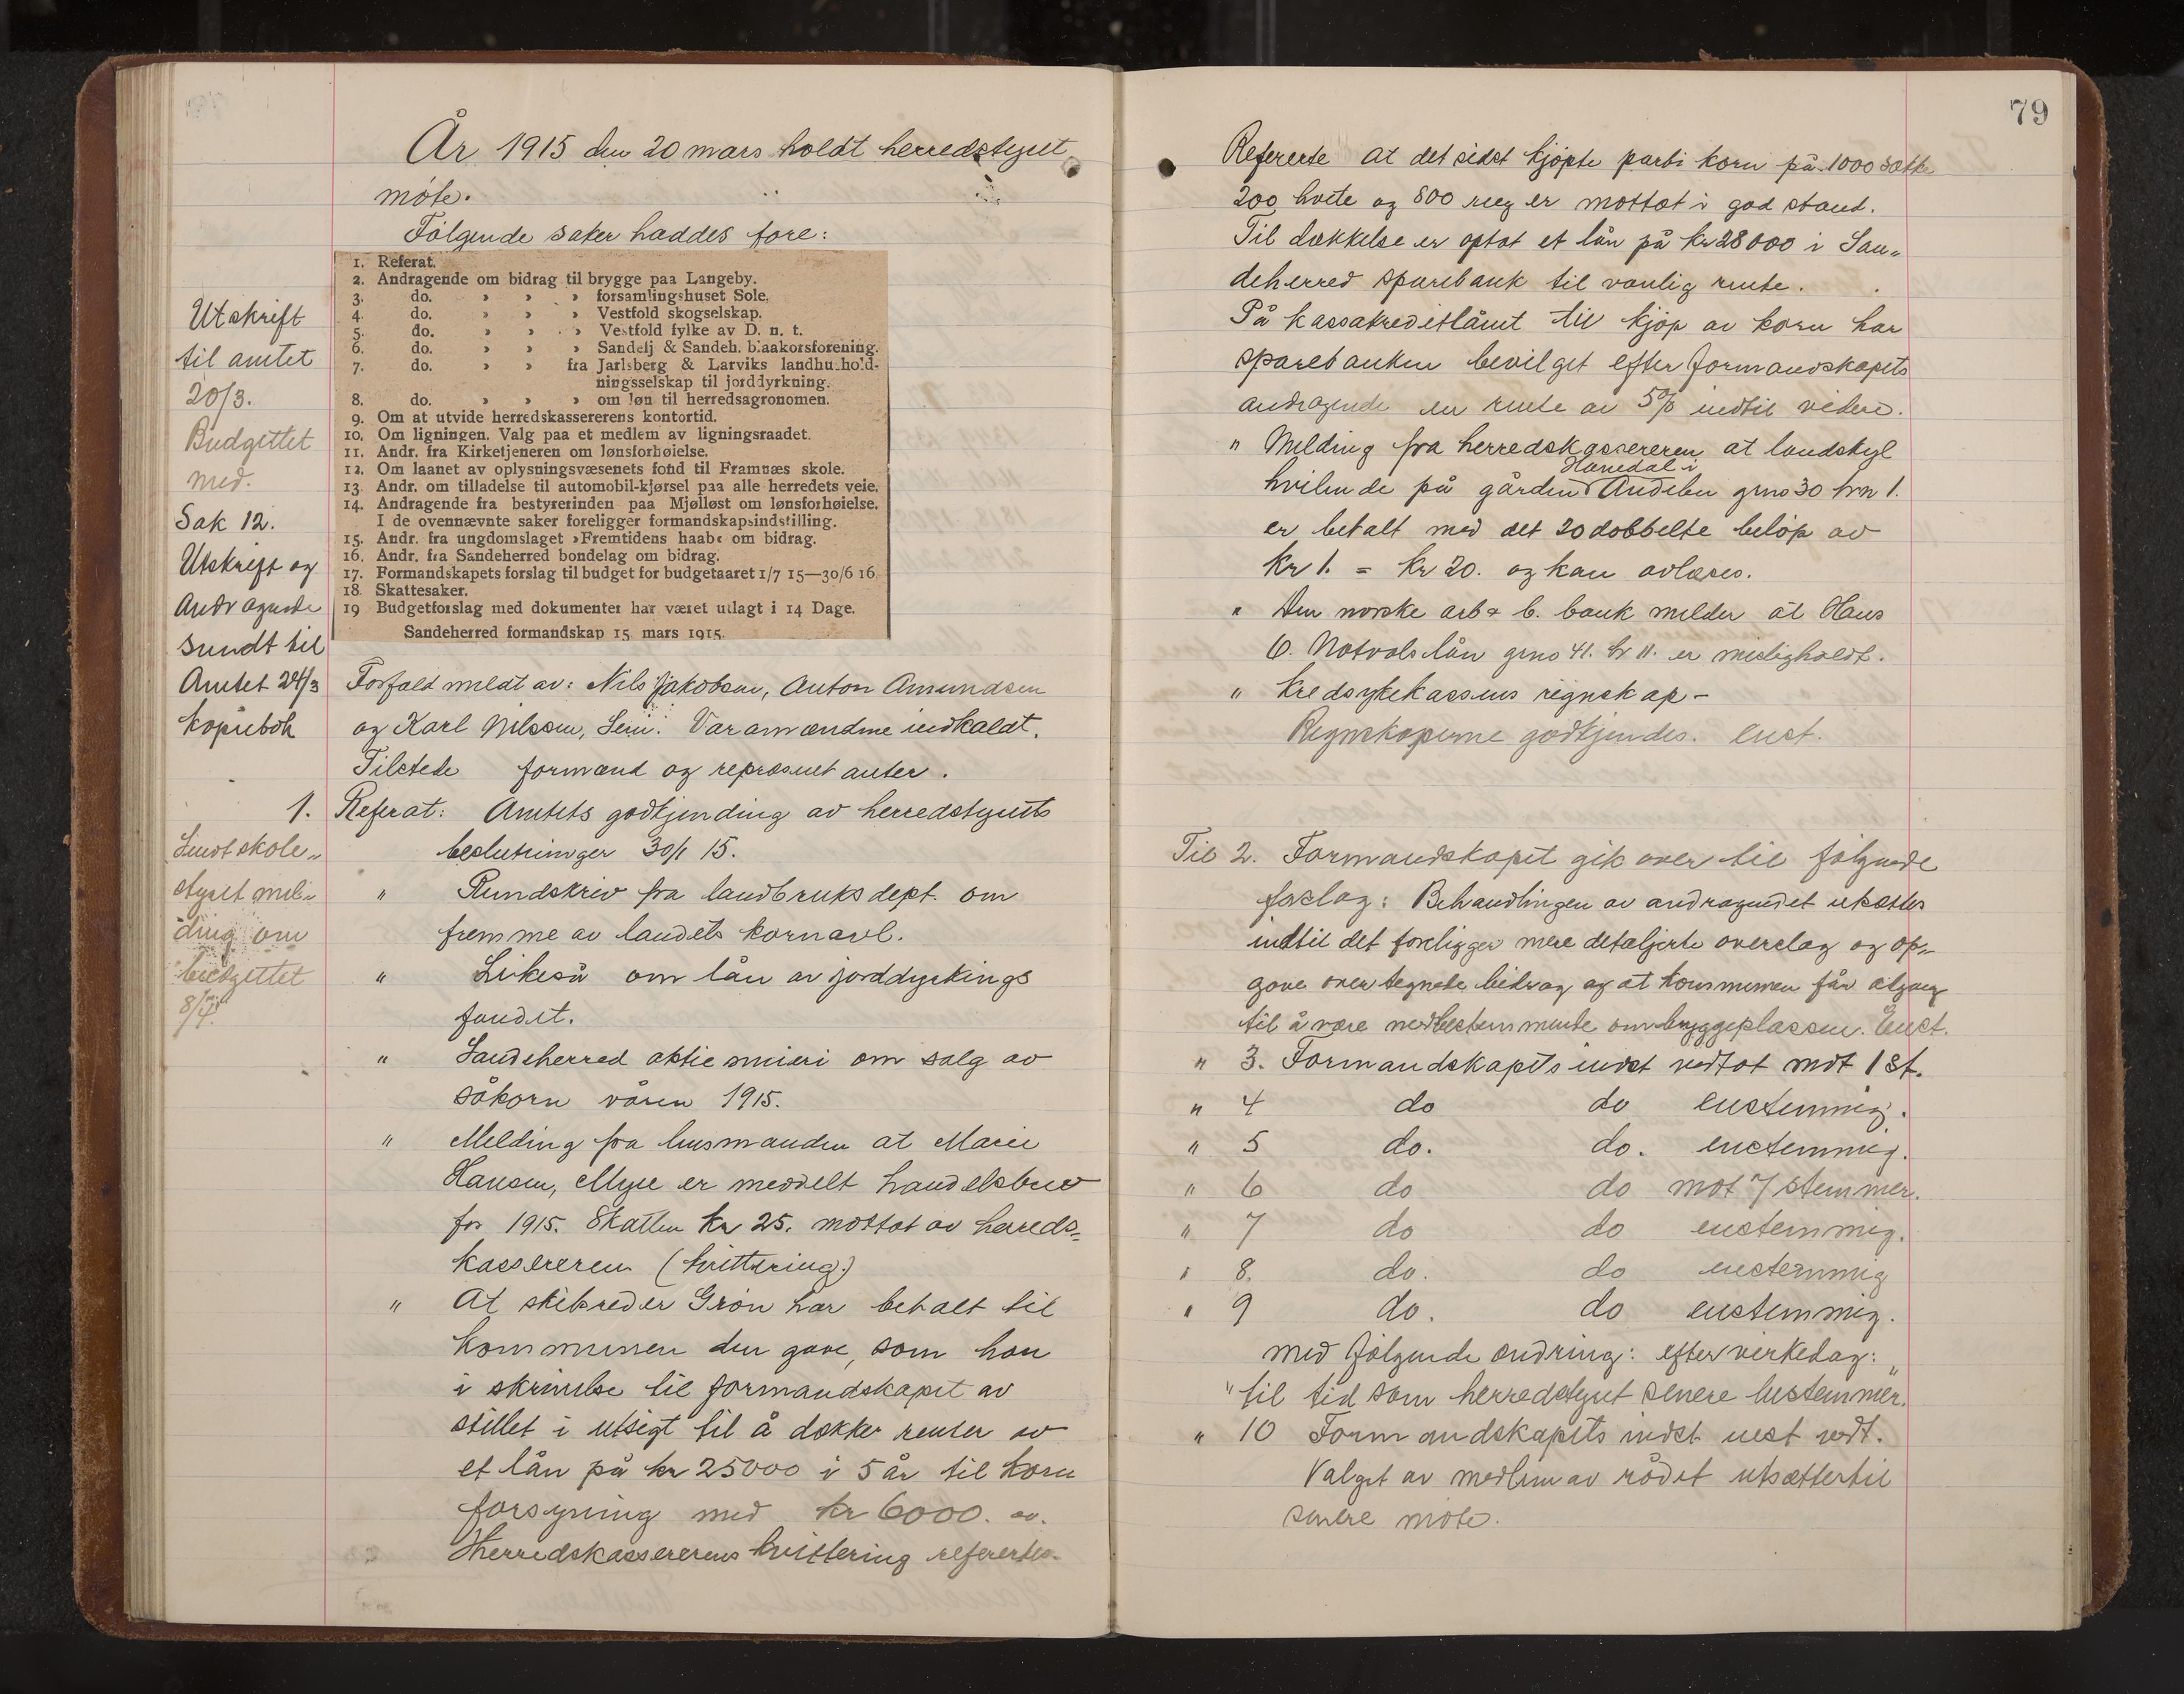 År 1915 den 20 mars holdt herredstyret
møte.
Følgende saker haddes fore:
1. Referat.
2. Andragende om bidrag til brygge paa Langeby.
3. do. » » » forsamlingshuset Sole.
4. do. » » » Vestfold skogselskap.
5. do. » » » Vestfold fylke av D. n. t.
6. do. » » » Sandefj & Sandeh. blaakorsforening.
7. do. » » fra Jarlsberg & Larviks landhushold-
ningsselskap til jorddyrkning.
8. do. » » » om løn til herredsagronomen.
9. Om at utvide herredskassererens kontortid.
10. Om ligningen. Valg paa et medlem av ligningsraadet.
11. Andr. fra Kirketjeneren om lønsforhøielse.
12. Om laanet av oplysningsvæsenets fond til Framnæs skole.
13. Andr. om tilladelse til automobil-kjørsel paa alle herredets veie.
14. Andragende fra bestyrerinden paa Mjølløst om lønsforhøielse.
I de ovennævnte saker foreligger formandskapsindstilling.
15. Andr. fra ungdomslaget »Fremtidens haab« om bidrag.
16. Andr. fra Sandeherred bondelag om bidrag.
17. Formandskapets forslag til budget for budgetaaret 1/7 15—30/6 16
18. Skattesaker.
19 Budgetforslag med dokumenter har været utlagt i 14 Dage.
Sandeherred formandskap 15. mars 1915.
Utskrift
til amtet
20/3.
Budgettet
med.
Sak 12.
Utskrift og
Andragende
sendt til
Amtet 24/3
kopiebok
Forfald meldt av: Nils Jakobsen, Anton Amundsen
og Karl Nilssen, Varamændene indkaldt.
Tilstede formænd og repræsentanter.
1. Referat: Amtets godkjending av herredstyrets
beslutninger 30/1 15.
Sendt skole-
styret mel-
ding om
budgettet
8/4.
" Rundskriv fra landbruksdept. om
fremme av landets kornavl.
" Likeså om lån av jorddyrkings
fondet.
" Sandeherred aktiemeieri om salg av
såkorn våren 1915.
" Melding fra lensmanden at Marie
Hansen, Myre er meddelt handelsbrev
for 1915. Skatten kr 25. mottat av herreds-
kassereren (kvittering.)
" At skibsreder Grøn har betalt til
kommunen den gave, som han
i skrivelse til formandskapet av
stillet i utsigt til å dække renter av
et lån på kr 25000 i 5 år til korn
forsyning med kr 6000.
Herredskassererens kvittering refertes.
79
Refererte at det sidst kjøpte parti korn på 1000 sække
200 hvete og 800 rug er mottat i god stand.
Til dækkelse er optat et lån på kr 28000 i San-
deherred sparebank til vanlig rente.
På kassakreditlånet til kjøp av korn har
sparebanken bevilget efter formandskapets
andragende en rente av 5% indtil videre.
" Melding fra herredskassereren at landskyl
Hanedal i
hvilende på gården Andebu gno 30 brn 1.
er betalt med det 20 dobbelte beløp av
kr 1. = kr 20. og kan avløses.
" Den norske arb & b. bank melder at Hans
O. Natvals lån gno 41. br 11. er misligholdt.
" Kredsykekassens regnskap -
Regnskaperne godkjendes. enst.
Til 2. Formandskapet gik over til følgende
forslag: Behandlingen av andragendet utsættes
indtil det foreligger mere detaljerte overslag og op-
gave over tegnete bidrag og at kommunen får adgang
til å være medbestemmende om bryggeplassen. Enst.
" 3. Formandskapets indst vedtat mot 1 st.
" 4 do do enstemmig.
" 5 do. do. enstemmig.
" 6 do do mot 7 stemmer.
" 7 do do enstemmig.
" 8. do. do enstemmig
" 9 do. do enstemmig.
med følgende ændring: efter virkedag:
"til tid som herredstyret senere bestemmer."
" 10 Formandskapets indst enst vedt.
Valget av medlem av rådet utsættes til
senere møte.